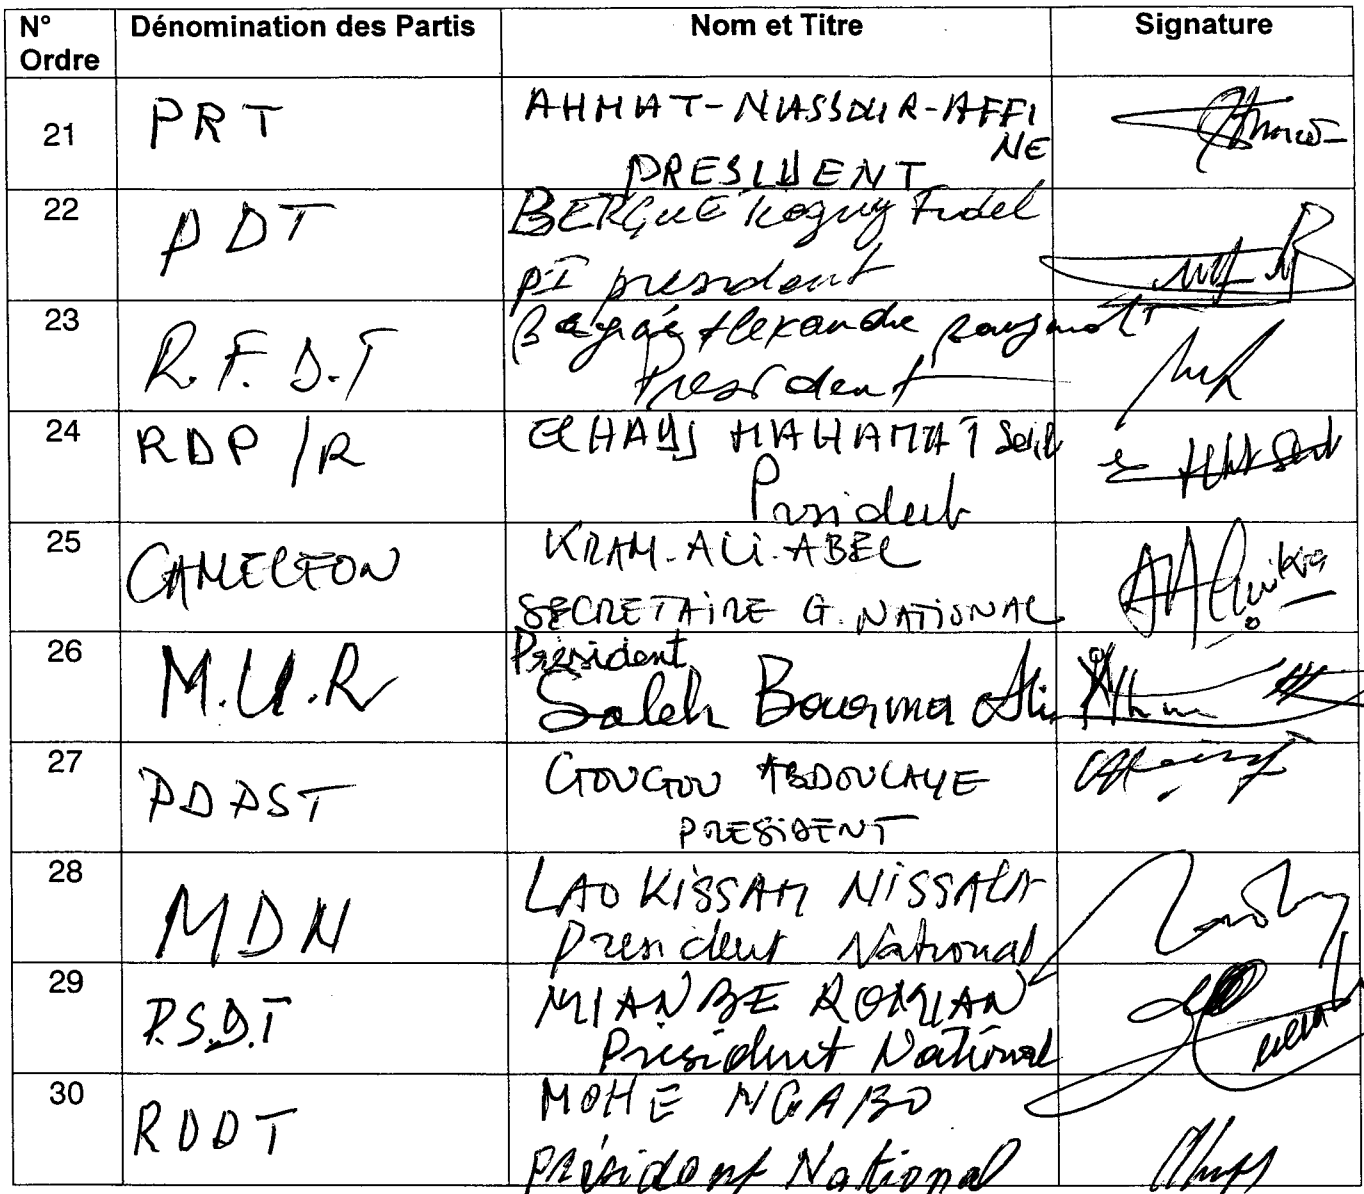 N° Ordre
Dénomination des Partis
Nom et Titre
Signature
21
PRT
AHMAT-NASSOUR-AFFI
NE
PRESIDENT
22
PDT
BERGUE Koguy Fidel
PI president
23
R.F.D.T
Alexandre
President
24
RDP/R
ELHADJ MAHAMAT Seid
President
25
CAMELEON
KRAM-ALI-ABEL
SECRETAIRE G. NATIONAL
26
M.U.R
President
Saleh Bourma Ali
27
PDPST
GOUGOU ABDOULAYE
PRESIDENT
28
MDN
LAOKISSAM NISSALA
President National
29
P.S.D.T
MIANBE ROMIAN
President National
30
RDDT
MOHE NGABO
Président National